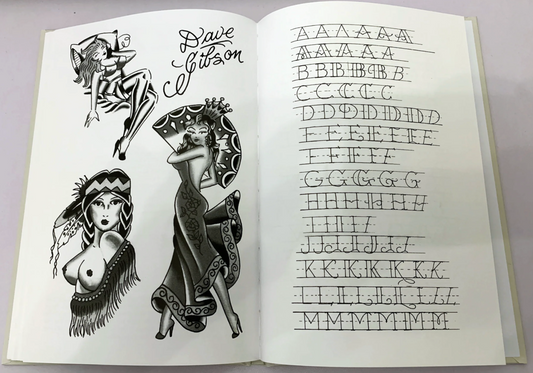 Dave
Gibson
A A A A A A
A A A A A
B B B B B B
C C C C C
D D D D D D D
E E E E E E
F F F F
G G G G G
H H H H H H
I I I I
J J J J J J
K K K K K K K
L L L L L L L
M M M M M M